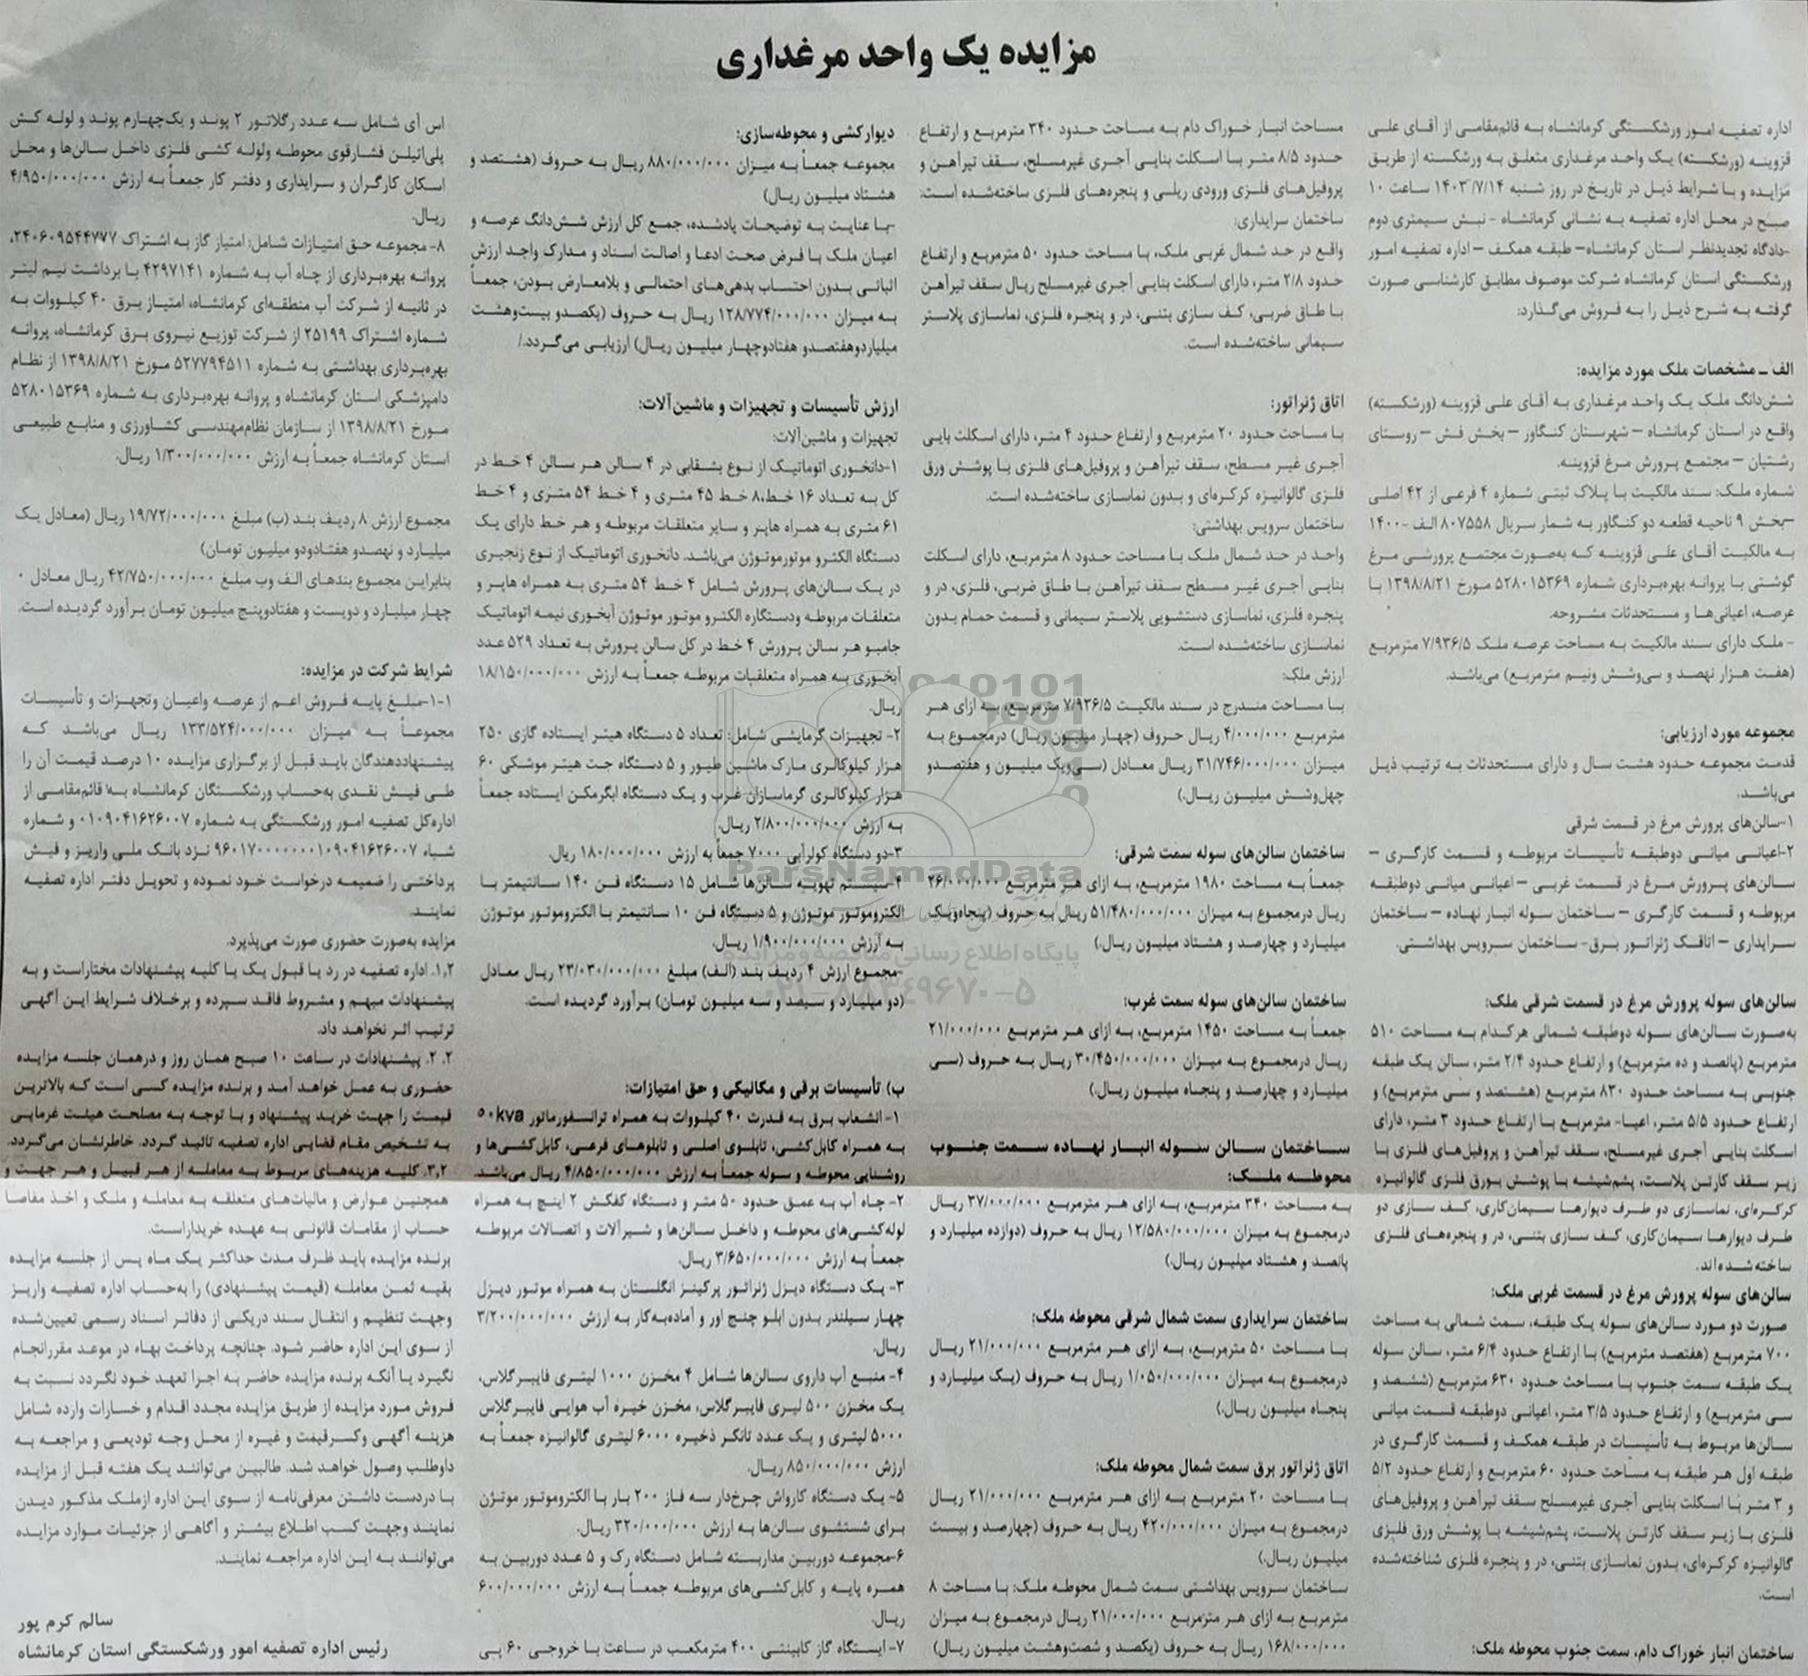 مزایده یک واحد مرغداری
اداره تصفیه امور ورشکستگی کرمانشاه به قائم‌مقامی از آقای علی
قزوینه (ورشکسته) یک واحد مرغداری متعلق به ورشکسته از طریق
مزایده و با شرایط ذیل در تاریخ در روز شنبه ۱۴۰۳/۷/۱۴ ساعت ۱۰
صبح در محل اداره تصفیه به نشانی کرمانشاه - نبش سیمتری دوم
-دادگاه تجدیدنظر استان کرمانشاه– طبقه همکف – اداره تصفیه امور
ورشکستگی استان کرمانشاه شرکت موصوف مطابق کارشناسی صورت
گرفته به شرح ذیل را به فروش می‌گذارد:
الف ـ مشخصات ملک مورد مزایده:
شش‌دانگ ملک یک واحد مرغداری به آقای علی قزوینه (ورشکسته)
واقع در استان کرمانشاه – شهرستان کنگاور – بخش فش – روستای
رشتیان – مجتمع پرورش مرغ قزوینه.
شماره ملک: سند مالکیت با پلاک ثبتی شماره ۴ فرعی از ۴۲ اصلی
–بخش ۹ ناحیه قطعه دو کنگاور به شمار سریال ۸۰۷۵۵۸ الف -۱۴۰۰
به مالکیت آقای علی قزوینه که به‌صورت مجتمع پرورشی مرغ
گوشتی با پروانه بهره‌برداری شماره ۵۲۸۰۱۵۳۶۹ مورخ ۱۳۹۸/۸/۲۱ با
عرصه، اعیانی‌ها و مستحدثات مشروحه.
- ملک دارای سند مالکیت به مساحت عرصه ملک ۷/۹۳۶/۵ مترمربع
(هفت هزار نهصد و سی‌وشش ونیم مترمربع) می‌باشد.
مجموعه مورد ارزیابی:
قدمت مجموعه حدود هشت سال و دارای مستحدثات به ترتیب ذیل
می‌باشد.
۱-سالن‌های پرورش مرغ در قسمت شرقی
۲-اعیانی میانی دوطبقه تأسیسات مربوطه و قسمت کارگری –
سالن‌های پرورش مرغ در قسمت غربی – اعیانی میانی دوطبقه
مربوطه و قسمت کارگری – ساختمان سوله انبار نهاده – ساختمان
سرایداری – اتاقک ژنراتور برق- ساختمان سرویس بهداشتی.
سالن‌های سوله پرورش مرغ در قسمت شرقی ملک:
به‌صورت سالن‌های سوله دوطبقه شمالی هرکدام به مساحت ۵۱۰
مترمربع (پانصد و ده مترمربع) و ارتفاع حدود ۲/۴ متر، سالن یک طبقه
جنوبی به مساحت حدود ۸۳۰ مترمربع (هشتصد و سی مترمربع) و
ارتفاع حدود ۵/۵ متر، اعیا- مترمربع با ارتفاع حدود ۳ متر، دارای
اسکلت بنایی آجری غیرمسلح، سقف تیرآهن و پروفیل‌های فلزی با
زیر سقف کارتن پلاست، پشم‌شیشه با پوشش بورق فلزی گالوانیزه
کرکره‌ای، نماسازی دو طرف دیوارها سیمان‌کاری، کف سازی دو
طرف دیوارها سیمان‌کاری، کف سازی بتنی، در و پنجره‌های فلزی
ساخته‌شده‌اند.
سالن‌های سوله پرورش مرغ در قسمت غربی ملک:
صورت دو مورد سالن‌های سوله یک طبقه، سمت شمالی به مساحت
۷۰۰ مترمربع (هفتصد مترمربع) با ارتفاع حدود ۶/۴ متر، سالن سوله
یک طبقه سمت جنوب با مساحت حدود ۶۳۰ مترمربع (ششصد و
سی مترمربع) و ارتفاع حدود ۳/۵ متر، اعیانی دوطبقه قسمت میانی
سالن‌ها مربوط به تأسیسات در طبقه همکف و قسمت کارگری در
طبقه اول هر طبقه به مساحت حدود ۶۰ مترمربع و ارتفاع حدود ۵/۲
و ۳ متر با اسکلت بنایی آجری غیرمسلح سقف تیرآهن و پروفیل‌های
فلزی با زیر سقف کارتن پلاست، پشم‌شیشه با پوشش ورق فلزی
گالوانیزه کرکره‌ای، بدون نماسازی بتنی، در و پنجره فلزی شناخته‌شده
است.
ساختمان انبار خوراک دام، سمت جنوب محوطه ملک:
مساحت انبار خوراک دام به مساحت حدود ۳۴۰ مترمربع و ارتفاع
حدود ۸/۵ متر با اسکلت بنایی آجری غیرمسلح، سقف تیرآهن و
پروفیل‌های فلزی ورودی ریلی و پنجره‌های فلزی ساخته‌شده است:
ساختمان سرایداری:
واقع در حد شمال غربی ملک، با مساحت حدود ۵۰ مترمربع و ارتفاع
حدود ۲/۸ متر، دارای اسکلت بنایی آجری غیرمسلح ریال سقف تیرآهن
با طاق ضربی، کف سازی بتنی، در و پنجره فلزی، نماسازی پلاستر
سیمانی ساخته‌شده است.
اتاق ژنراتور:
با مساحت حدود ۲۰ مترمربع و ارتفاع حدود ۴ متر، دارای اسکلت بایی
آجری غیر مسطح، سقف تیرآهن و پروفیل‌های فلزی با پوشش ورق
فلزی گالوانیزه کرکره‌ای و بدون نماسازی ساخته‌شده است.
ساختمان سرویس بهداشتی:
واحد در حد شمال ملک با مساحت حدود ۸ مترمربع، دارای اسکلت
بنایی آجری غیر مسطح سقف تیرآهن با طاق ضربی، فلزی، در و
پنجره فلزی، نماسازی دستشویی پلاستر سیمانی و قسمت حمام بدون
نماسازی ساخته‌شده است.
ارزش ملک:
با مساحت مندرج در سند مالکیت ۷/۹۳۶/۵ مترمربع، به ازای هر
مترمربع ۴/۰۰۰/۰۰۰ ریال حروف (چهار میلیون ریال) درمجموع به
میزان ۳۱/۷۴۶/۰۰۰/۰۰۰ ریال معادل (سی‌ویک میلیون و هفتصدو
چهل‌وشش میلیون ریال.)
ساختمان سالن‌های سوله سمت شرقی:
جمعاً به مساحت ۱۹۸۰ مترمربع، به ازای هر مترمربع ۲۶/۰۰۰/۰۰۰
ریال درمجموع به میزان ۵۱/۴۸۰/۰۰۰/۰۰۰ ریال به حروف (پنجاه‌ویک
میلیارد و چهارصد و هشتاد میلیون ریال.)
ساختمان سالن‌های سوله سمت غرب:
جمعاً به مساحت ۱۴۵۰ مترمربع، به ازای هر مترمربع ۲۱/۰۰۰/۰۰۰
ریال درمجموع به میزان ۳۰/۴۵۰/۰۰۰/۰۰۰ ریال به حروف (سی
میلیارد و چهارصد و پنجاه میلیون ریال.)
ساختمان سالن سوله انبار نهاده سمت جنوب
محوطه ملک:
به مساحت ۳۴۰ مترمربع، به ازای هر مترمربع ۳۷/۰۰۰/۰۰۰ ریال
درمجموع به میزان ۱۲/۵۸۰/۰۰۰/۰۰۰ ریال به حروف (دوازده میلیارد و
پانصد و هشتاد میلیون ریال.)
ساختمان سرایداری سمت شمال شرقی محوطه ملک:
با مساحت ۵۰ مترمربع، به ازای هر مترمربع ۲۱/۰۰۰/۰۰۰ ریال
درمجموع به میزان ۱/۰۵۰/۰۰۰/۰۰۰ ریال به حروف (یک میلیارد و
پنجاه میلیون ریال.)
اتاق ژنراتور برق سمت شمال محوطه ملک:
با مساحت ۲۰ مترمربع به ازای هر مترمربع ۲۱/۰۰۰/۰۰۰ ریال
درمجموع به میزان ۴۲۰/۰۰۰/۰۰۰ ریال به حروف (چهارصد و بیست
میلیون ریال.)
ساختمان سرویس بهداشتی سمت شمال محوطه ملک: با مساحت ۸
مترمربع به ازای هر مترمربع ۲۱/۰۰۰/۰۰۰ ریال درمجموع به میزان
۱۶۸/۰۰۰/۰۰۰ ریال به حروف (یکصد و شصت‌وهشت میلیون ریال)
دیوارکشی و محوطه‌سازی:
مجموعه جمعاً به میزان ۸۸۰/۰۰۰/۰۰۰ ریال به حروف (هشتصد و
هشتاد میلیون ریال)
-با عنایت به توضیحات یادشده، جمع کل ارزش شش‌دانگ عرصه و
اعیان ملک با فرض صحت ادعا و اصالت اسناد و مدارک واجد ارزش
اثباتی بدون احتساب بدهی‌های احتمالی و بلامعارض بودن، جمعاً
به میزان ۱۲۸/۷۷۴/۰۰۰/۰۰۰ ریال به حروف (یکصدو بیست‌وهشت
میلیاردوهفتصدو هفتادوچهار میلیون ریال) ارزیابی می‌گردد./
ارزش تأسیسات و تجهیزات و ماشین‌آلات:
تجهیزات و ماشین‌آلات:
۱-دانخوری اتوماتیک از نوع بشقابی در ۴ سالن هر سالن ۴ خط در
کل به تعداد ۱۶ خط،۸ خط ۴۵ متری و ۴ خط ۵۴ متری و ۴ خط
۶۱ متری به همراه هاپر و سایر متعلقات مربوطه و هر خط دارای یک
دستگاه الکترو موتورموتوژن می‌باشد. دانخوری اتوماتیک از نوع زنجیری
در یک سالن‌های پرورش شامل ۴ خط ۵۴ متری به همراه هاپر و
متعلقات مربوطه ودستگاره الکترو موتور موتوژن آبخوری نیمه اتوماتیک
جامبو هر سالن پرورش ۴ خط در کل سالن پرورش به تعداد ۵۲۹ عدد
آبخوری به همراه متعلقات مربوطه جمعاً به ارزش ۱۸/۱۵۰/۰۰۰/۰۰۰
ریال.
۲- تجهیزات گرمایشی شامل: تعداد ۵ دستگاه هیتر ایستاده گازی ۲۵۰
هزار کیلوکالری مارک ماشین طیور و ۵ دستگاه جت هیتر موشکی ۶۰
هزار کیلوکالری گرماسازان غرب و یک دستگاه ابگرمکن ایستاده جمعاً
به ارزش ۲/۸۰۰/۰۰۰/۰۰۰ ریال.
۳-دو دستگاه کولرآبی ۷۰۰۰ جمعاً به ارزش ۱۸۰/۰۰۰/۰۰۰ ریال.
۴-سیستم تهویه سالن‌ها شامل ۱۵ دستگاه فن ۱۴۰ سانتیمتر با
الکتروموتور موتوژن و ۵ دستگاه فن ۱۰ سانتیمتر با الکتروموتور موتوژن
به ارزش ۱/۹۰۰/۰۰۰/۰۰۰ ریال.
-مجموع ارزش ۴ ردیف بند (الف) مبلغ ۲۳/۰۳۰/۰۰۰/۰۰۰ ریال معادل
(دو میلیارد و سیصد و سه میلیون تومان) برآورد گردیده است.
ب) تأسیسات برقی و مکانیکی و حق امتیازات:
۱- انشعاب برق به قدرت ۴۰ کیلووات به همراه ترانسفورماتور ۵۰kva
به همراه کابل‌کشی، تابلوی اصلی و تابلوهای فرعی، کابل‌کشی‌ها و
روشنایی محوطه و سوله جمعاً به ارزش ۴/۸۵۰/۰۰۰/۰۰۰ ریال می‌باشد.
۲- چاه آب به عمق حدود ۵۰ متر و دستگاه کفکش ۲ اینچ به همراه
لوله‌کشی‌های محوطه و داخل سالن‌ها و شیرآلات و اتصالات مربوطه
جمعاً به ارزش ۳/۶۵۰/۰۰۰/۰۰۰ ریال.
۳- یک دستگاه دیزل ژنراتور پرکینز انگلستان به همراه موتور دیزل
چهار سیلندر بدون ابلو چنج اور و آماده‌به‌کار به ارزش ۳/۲۰۰/۰۰۰/۰۰۰
ریال.
۴- منبع آب داروی سالن‌ها شامل ۴ مخزن ۱۰۰۰ لیتری فایبرگلاس،
یک مخزن ۵۰۰ لیری فایبرگلاس، مخزن خیره آب هوایی فایبرگلاس
۵۰۰۰ لیتری و یک عدد تانکر ذخیره ۶۰۰۰ لیتری گالوانیزه جمعاً به
ارزش ۸۵۰/۰۰۰/۰۰۰ ریال.
۵- یک دستگاه کارواش چرخ‌دار سه فاز ۲۰۰ بار با الکتروموتور موتژن
برای شستشوی سالن‌ها به ارزش ۳۲۰/۰۰۰/۰۰۰ ریال.
۶-مجموعه دوربین مداربسته شامل دستگاه رک و ۵ عدد دوربین به
همره پایه و کابل‌کشی‌های مربوطه جمعاً به ارزش ۶۰۰/۰۰۰/۰۰۰
ریال.
۷- ایستگاه گاز کابینتی ۴۰۰ مترمکعب در ساعت با خروجی ۶۰ پی
اس آی شامل سه عدد رگلاتور ۲ پوند و یک‌چهارم پوند و لوله کش
پلی‌اتیلن فشارقوی محوطه ولوله کشی فلزی داخل سالن‌ها و محل
اسکان کارگران و سرایداری و دفتر کار جمعاً به ارزش ۴/۹۵۰/۰۰۰/۰۰۰
ریال.
۸- مجموعه حق امتیازات شامل: امتیاز گاز به اشتراک ۲۴۰۶۰۹۵۴۴۷۷۷،
پروانه بهره‌برداری از چاه آب به شماره ۴۲۹۷۱۴۱ با برداشت نیم لیتر
در ثانیه از شرکت آب منطقه‌ای کرمانشاه، امتیاز برق ۴۰ کیلووات به
شماره اشتراک ۲۵۱۹۹ از شرکت توزیع نیروی برق کرمانشاه، پروانه
بهره‌برداری بهداشتی به شماره ۵۲۷۷۹۴۵۱۱ مورخ ۱۳۹۸/۸/۲۱ از نظام
دامپزشکی استان کرمانشاه و پروانه بهره‌برداری به شماره ۵۲۸۰۱۵۳۶۹
مورخ ۱۳۹۸/۸/۲۱ از سازمان نظام‌مهندسی کشاورزی و منابع طبیعی
استان کرمانشاه جمعاً به ارزش ۱/۳۰۰/۰۰۰/۰۰۰ ریال.
مجموع ارزش ۸ ردیف بند (ب) مبلغ ۱۹/۷۲/۰۰۰/۰۰۰ ریال (معادل یک
میلیارد و نهصدو هفتادودو میلیون تومان)
بنابراین مجموع بندهای الف وب مبلغ ۴۲/۷۵۰/۰۰۰/۰۰۰ ریال معادل ۰
چهار میلیارد و دویست و هفتادوپنج میلیون تومان برآورد گردیده است.
شرایط شرکت در مزایده:
۱-۱-مبلغ پایه فروش اعم از عرصه واعیان وتجهیزات و تأسیسات
مجموعاً به میزان ۱۳۳/۵۲۴/۰۰۰/۰۰۰ ریال می‌باشد که
پیشنهاددهندگان باید قبل از برگزاری مزایده ۱۰ درصد قیمت آن را
طی فیش نقدی به‌حساب ورشکستگان کرمانشاه به قائم‌مقامی از
اداره‌کل تصفیه امور ورشکستگی به شماره ۰۱۰۹۰۴۱۶۲۶۰۰۷ و شماره
شباء ۹۶۰۱۷۰۰۰۰۰۰۰۱۰۹۰۴۱۶۲۶۰۰۷ نزد بانک ملی واریز و فیش
پرداختی را ضمیمه درخواست خود نموده و تحویل دفتر اداره تصفیه
نمایند.
مزایده به‌صورت حضوری صورت می‌پذیرد.
۱٫۲. اداره تصفیه در رد یا قبول یک یا کلیه پیشنهادات مختاراست و به
پیشنهادات مبهم و مشروط فاقد سپرده و برخلاف شرایط این آگهی
ترتیب اثر نخواهد داد.
۲. ۲. پیشنهادات در ساعت ۱۰ صبح همان روز و درهمان جلسه مزایده
حضوری به عمل خواهد آمد و برنده مزایده کسی است که بالاترین
قیمت را جهت خرید پیشنهاد و با توجه به مصلحت هیئت غرمایی
به تشخیص مقام قضایی اداره تصفیه تائید گردد. خاطرنشان می‌گردد.
۳٫۲. کلیه هزینه‌های مربوط به معامله از هر قبیل و هر جهت و
همچنین عوارض و مالیات‌های متعلقه به معامله و ملک و اخذ مفاصا
حساب از مقامات قانونی به عهده خریداراست.
برنده مزایده باید ظرف مدت حداکثر یک ماه پس از جلسه مزایده
بقیه ثمن معامله (قیمت پیشنهادی) را به‌حساب اداره تصفیه واریز
وجهت تنظیم و انتقال سند دریکی از دفاتر اسناد رسمی تعیین‌شده
از سوی این اداره حاضر شود. چنانچه پرداخت بهاء در موعد مقررانجام
نگیرد یا آنکه برنده مزایده حاضر به اجرا تعهد خود نگردد نسبت به
فروش مورد مزایده از طریق مزایده مجدد اقدام و خسارات وارده شامل
هزینه آگهی وکسرقیمت و غیره از محل وجه تودیعی و مراجعه به
داوطلب وصول خواهد شد. طالبین می‌توانند یک هفته قبل از مزایده
با دردست داشتن معرفی‌نامه از سوی این اداره ازملک مذکور دیدن
نمایند وجهت کسب اطلاع بیشتر و آگاهی از جزئیات موارد مزایده
می‌توانند به این اداره مراجعه نمایند.
سالم کرم پور
رئیس اداره تصفیه امور ورشکستگی استان کرمانشاه
ParsNamadData
پایگاه اطلاع رسانی مناقصه و مزایده